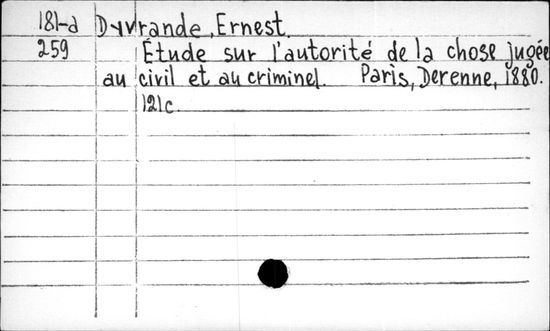 181-d Dyvrande, Ernest.
259 Étude sur l'autorité de la chose jugée
au civil et au criminel. Paris, Derenne, 1880.
121c.